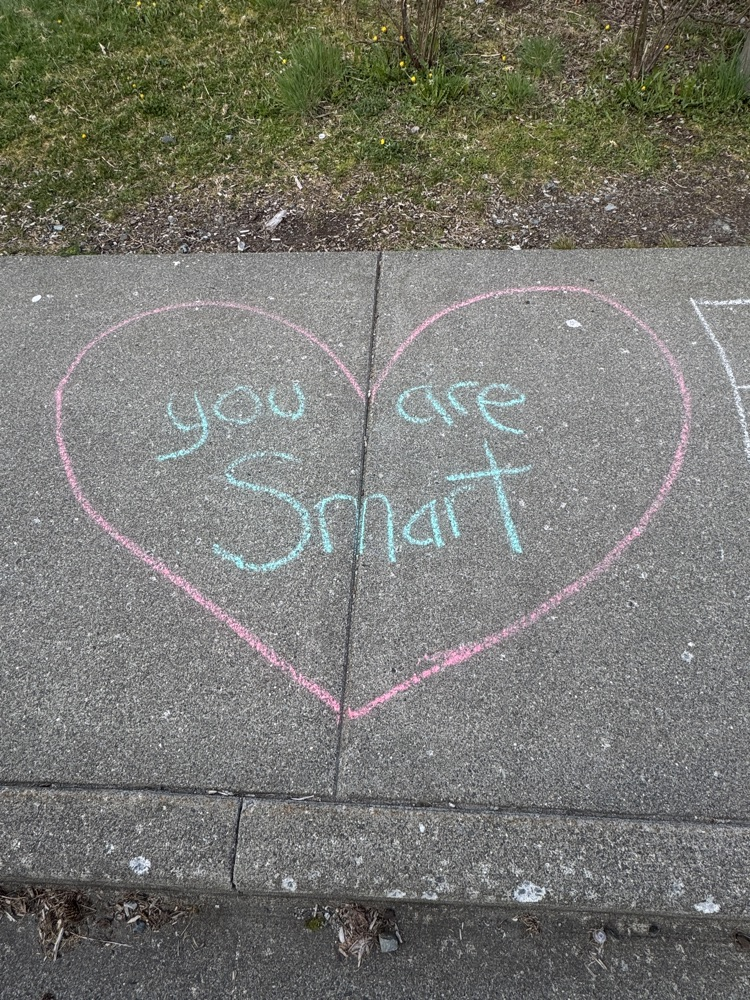 you are
Smart